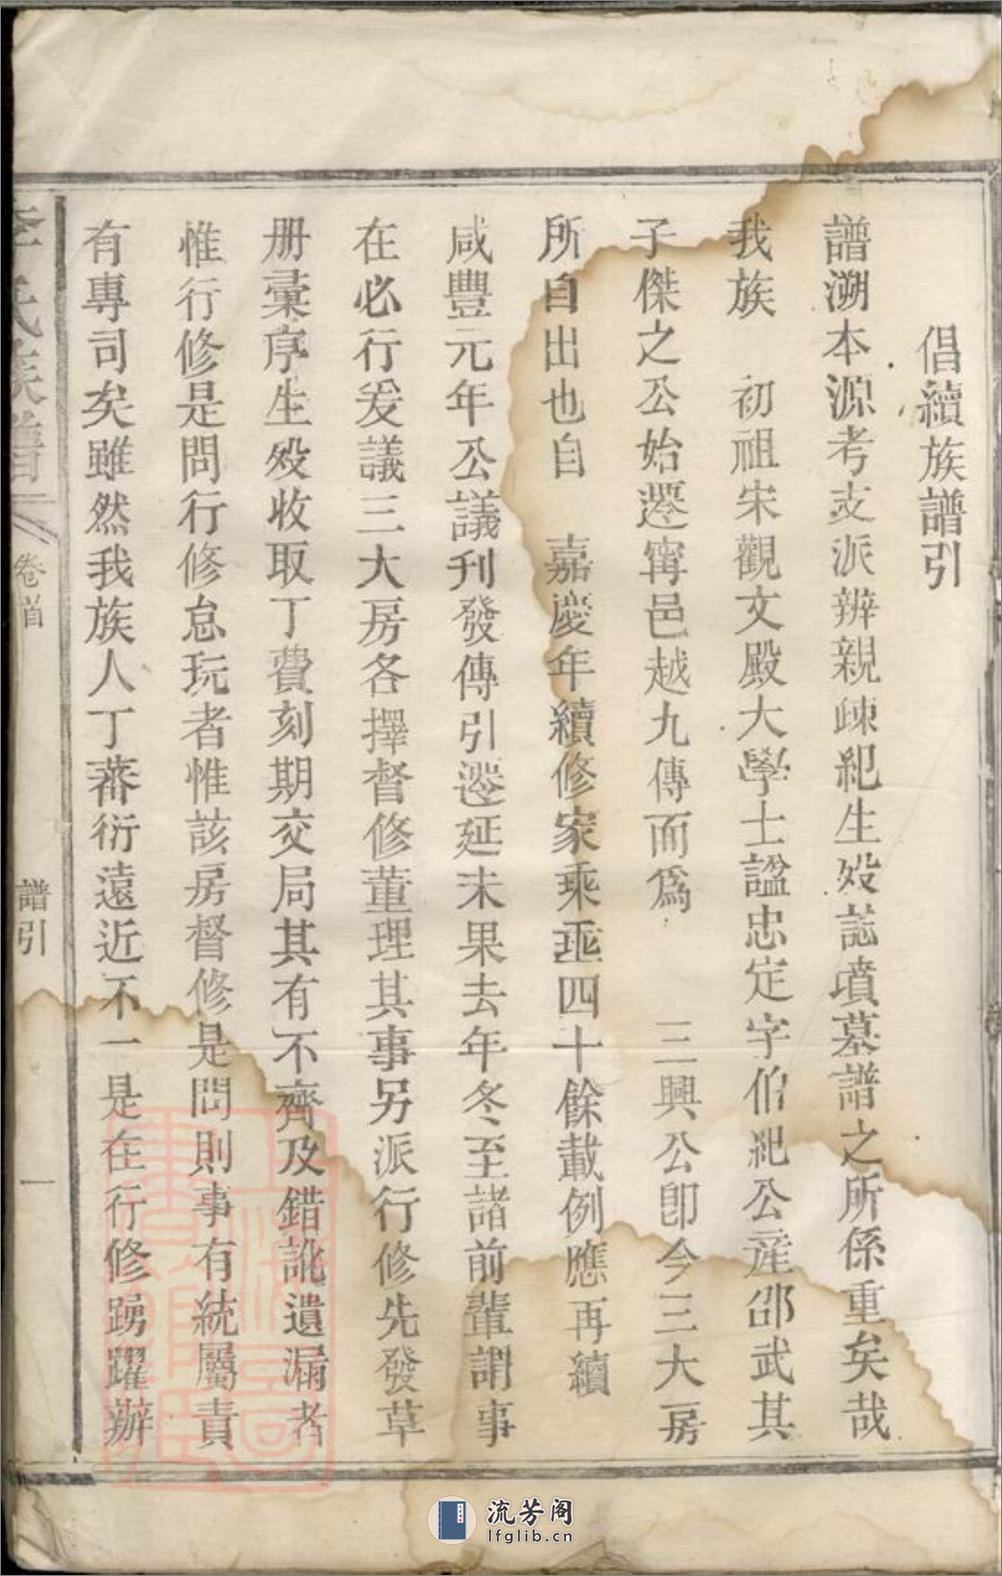 倡續族譜引
譜溯本源考支派辨親疎紀生歿誌墳墓譜之所係重矣哉
我族　初祖宋觀文殿大學士諡忠定字伯紀公産邵武其
子傑之公始遷寗邑越九傳而爲　三興公卽今三大房
所自出也自　嘉慶年續修家乘乘四十餘載例應再續
咸豐元年公議刊發傳引遷延未果去年冬至諸前輩謂事
在必行爰議三大房各擇督修董理其事另派行修先發草
册彙序生歿收取丁費刻期交局其有不齊及錯訛遺漏者
惟行修是問行修怠玩者惟該房督修是問則事有統屬責
有專司矣雖然我族人丁蕃衍遠近不一是在行修踴躍辦
李氏族譜
卷首
譜引
一
流芳阁
lfglib.cn